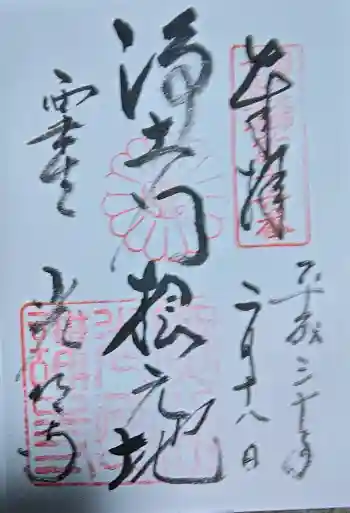 奉拝
平成三十年
二月十八日
浄土門根元地
粟生 光明寺